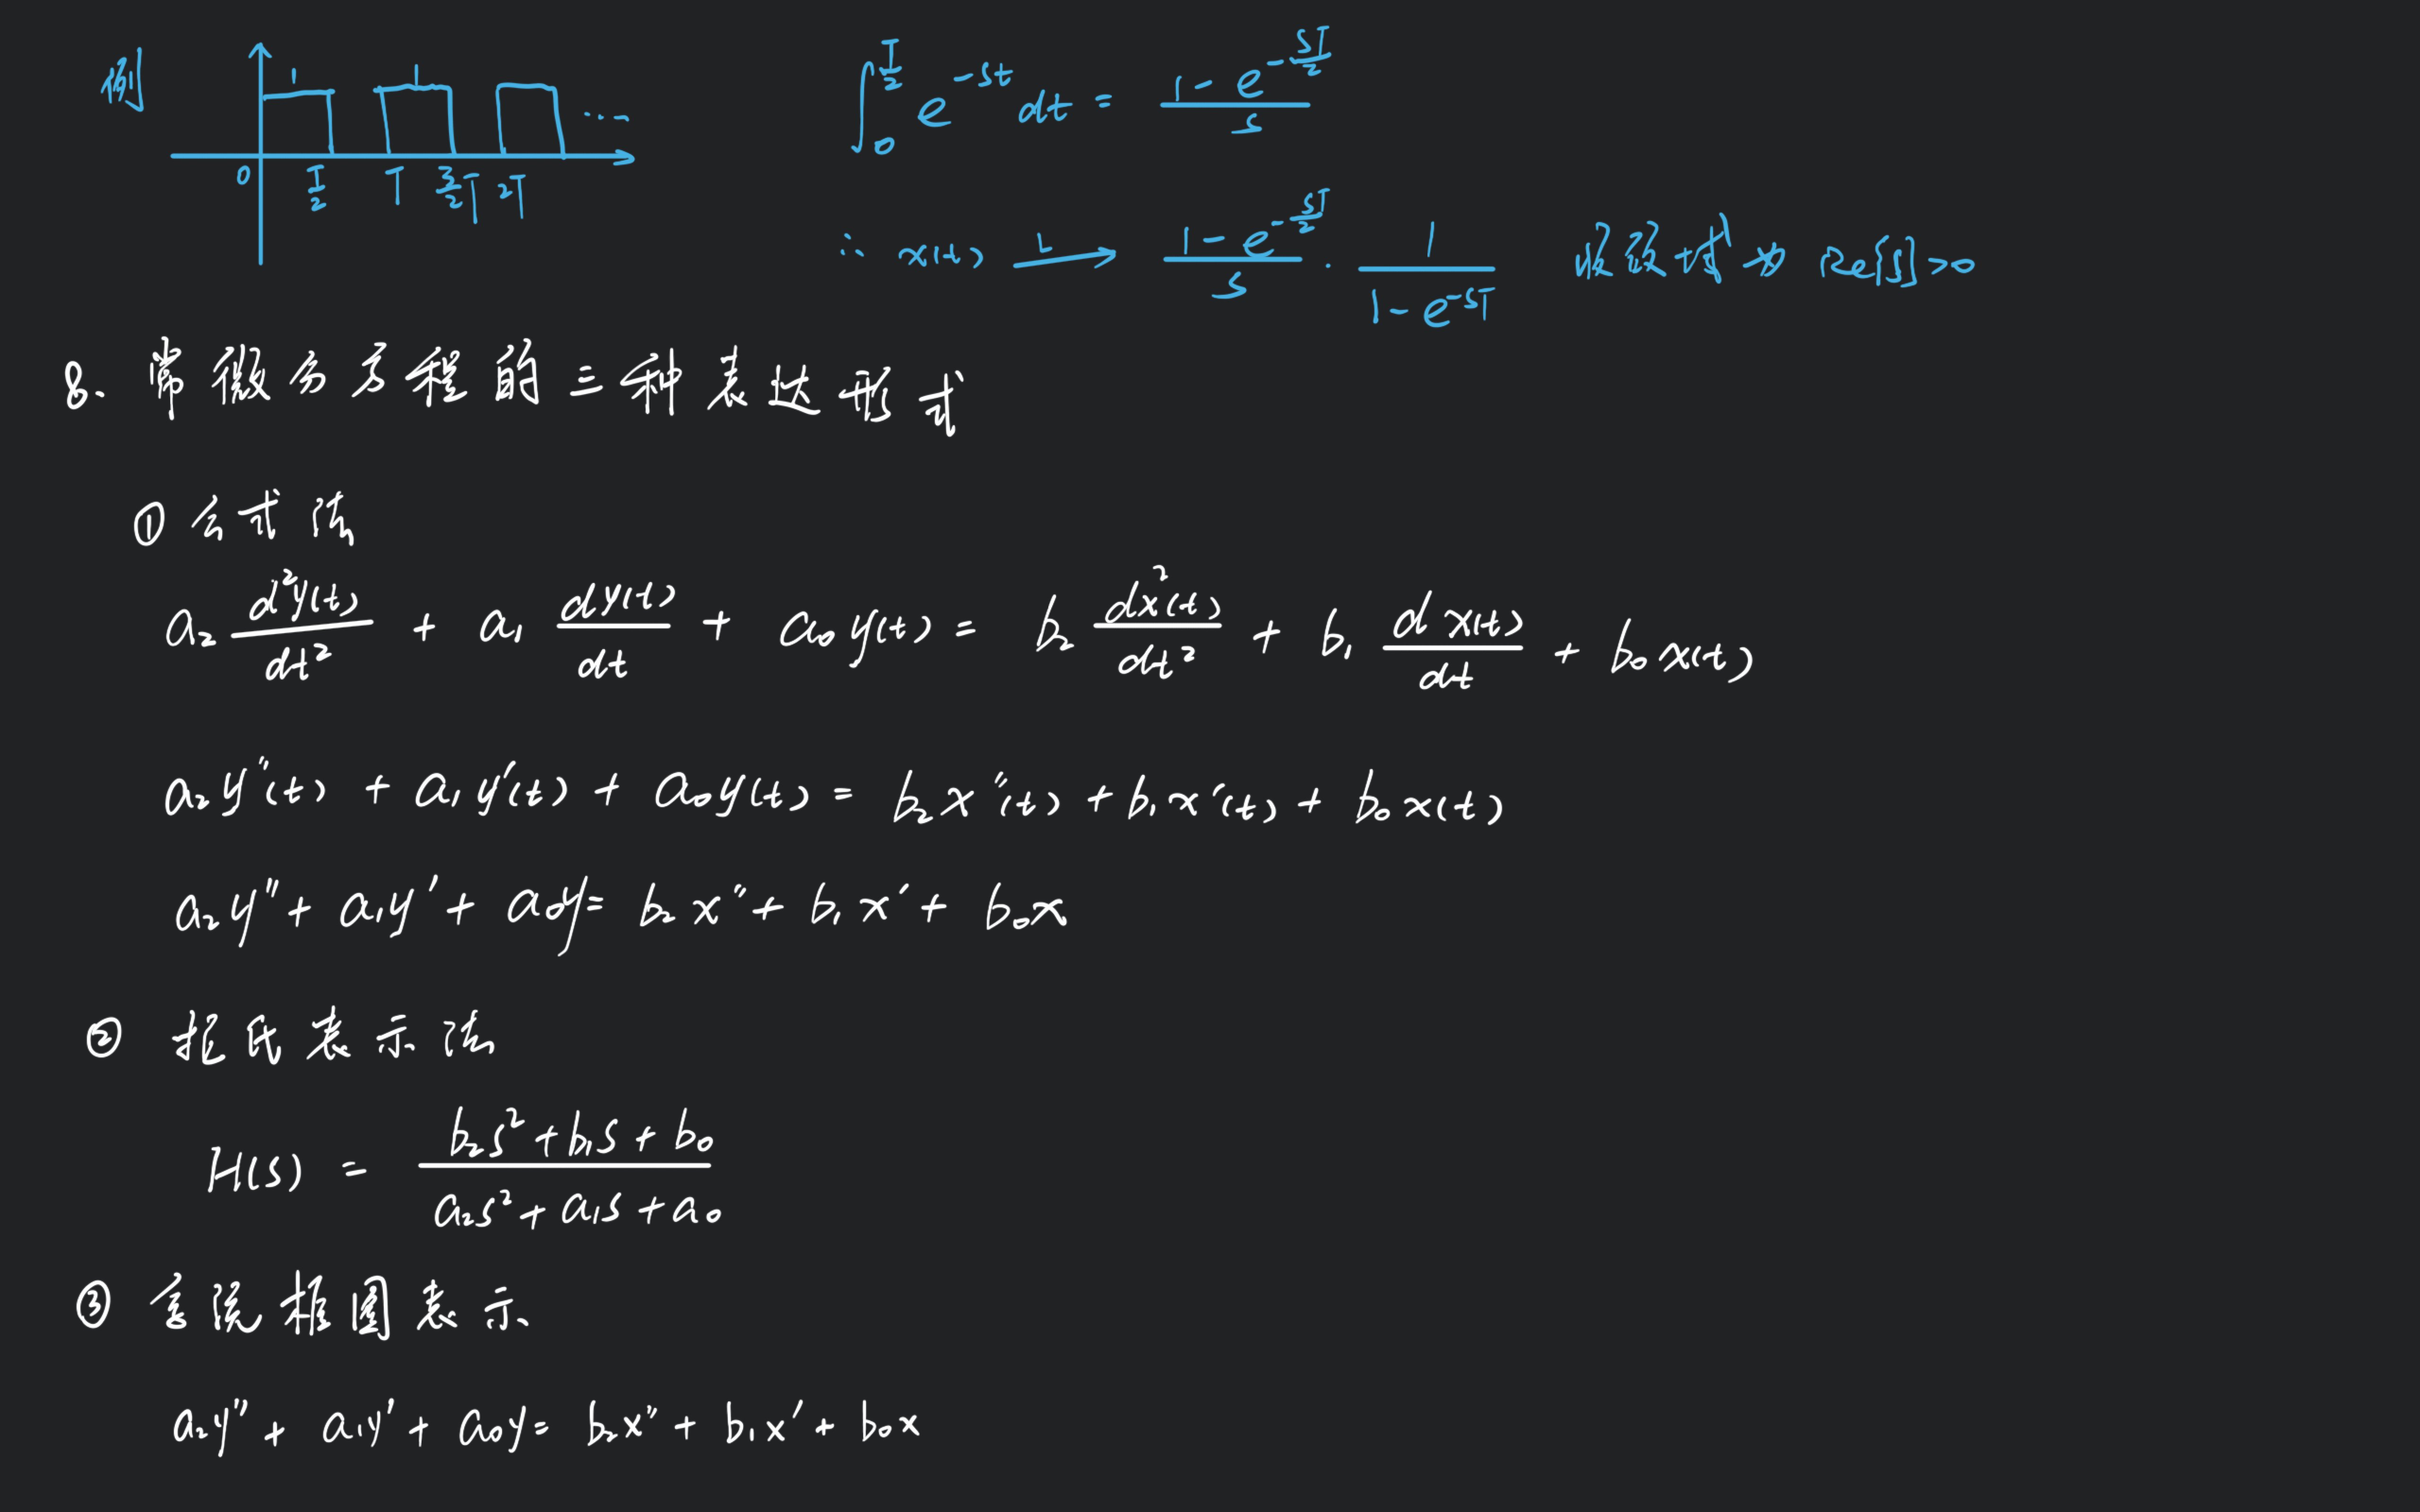 例 1 1 ...
0 T/2 T 3/2 T 2T
∫₀^{T/2} e^{-st} dt = (1 - e^{-sT/2}) / s
∴ x(t) —L→ (1 - e^{-sT/2}) / s · 1 / (1 - e^{-sT}) 收敛域为 Re[s]>0
8. 常微分方程的三种表达形式
① 公式法
a₂ d²y(t)/dt² + a₁ dy(t)/dt + a₀y(t) = b₂ dx²(t)/dt² + b₁ dx(t)/dt + b₀x(t)
a₂y''(t) + a₁y'(t) + a₀y(t) = b₂x''(t) + b₁x'(t) + b₀x(t)
a₂y'' + a₁y' + a₀y = b₂x'' + b₁x' + b₀x
② 拉氏表示法
H(s) = (b₂s² + b₁s + b₀) / (a₂s² + a₁s + a₀)
③ 系统框图表示
a₂y'' + a₁y' + a₀y = b₂x'' + b₁x' + b₀x